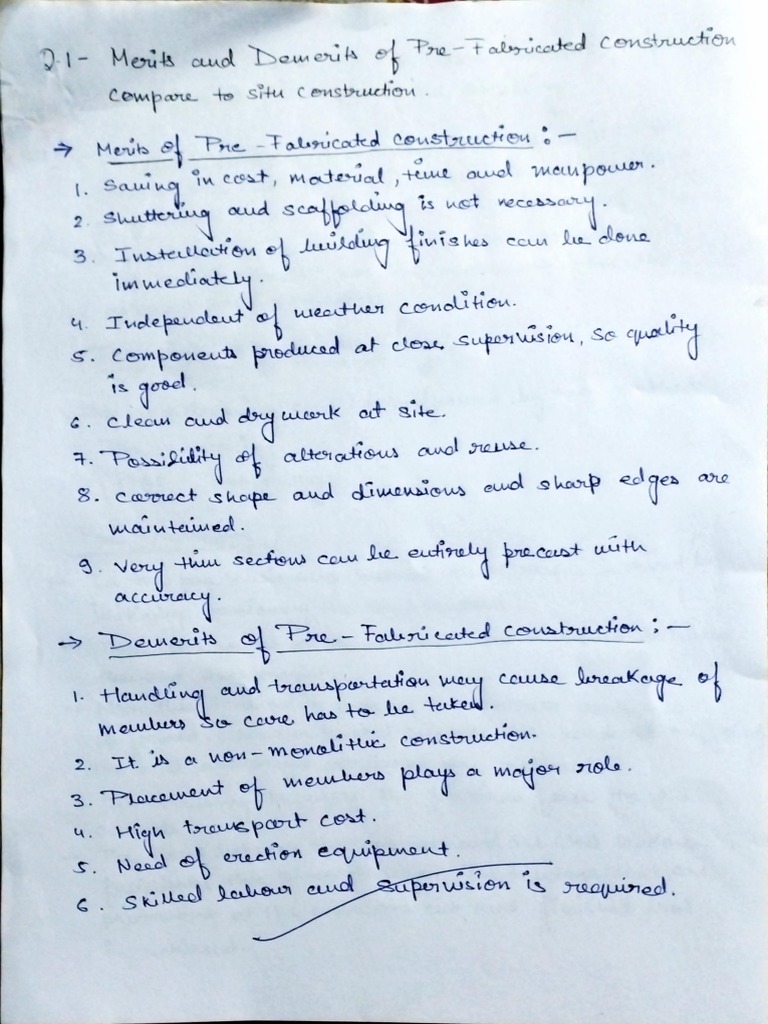 Q.1- Merits and Demerits of Pre-Fabricated construction
compare to situ construction.
→ Merits of Pre-Fabricated construction :-
1. Saving in cost, material, time and manpower.
2. Shuttering and scaffolding is not necessary.
3. Installation of building finishes can be done
immediately.
4. Independent of weather condition.
5. Components produced at close supervision, so quality
is good.
6. Clean and dry work at site.
7. Possibility of alterations and reuse.
8. Correct shape and dimensions and sharp edges are
maintained.
9. Very thin sections can be entirely precast with
accuracy.
→ Demerits of Pre-Fabricated construction :-
1. Handling and transportation may cause breakage of
members so care has to be taken.
2. It is a non-monolithic construction.
3. Placement of members plays a major role.
4. High transport cost.
5. Need of erection equipment.
6. Skilled labour and supervision is required.